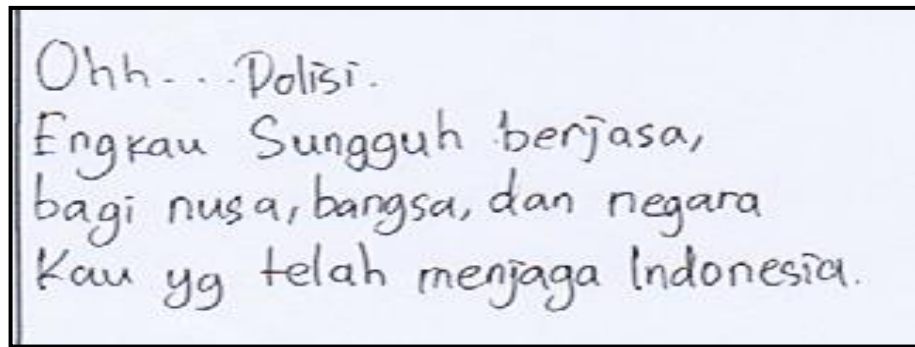 Ohh... Polisi.
Engkau Sungguh berjasa,
bagi nusa, bangsa, dan negara
Kau yg telah menjaga Indonesia.